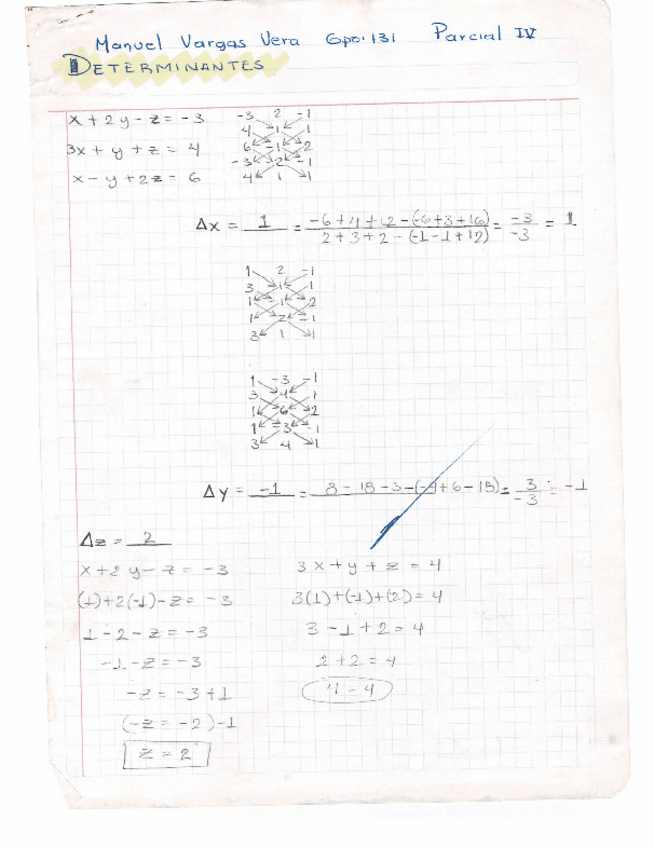 Manuel Vargas Vera Gpo:131 Parcial IV
DETERMINANTES
x + 2y - z = -3
3x + y + z = 4
x - y + 2z = 6
-3 2 -1
4 1 1
6 -1 2
-3 2 -1
4 1 1
Δx = 1 = -6+4+12-(-6+3+16) / 2+3+2-(-1-1+12) = -3/-3 = 1
1 2 -1
3 1 1
1 -1 2
1 2 -1
3 1 1
1 -3 -1
3 4 1
1 6 2
1 -3 -1
3 4 1
Δy = -1 = 8-18-3-(-4+6-18) = 3/-3 = -1
Δz = 2
x + 2y - z = -3
(1)+2(-1)-z = -3
1 - 2 - z = -3
-1 - z = -3
-z = -3+1
(-z = -2)-1
z = 2
3x + y + z = 4
3(1)+(-1)+(2) = 4
3 - 1 + 2 = 4
2 + 2 = 4
4 = 4